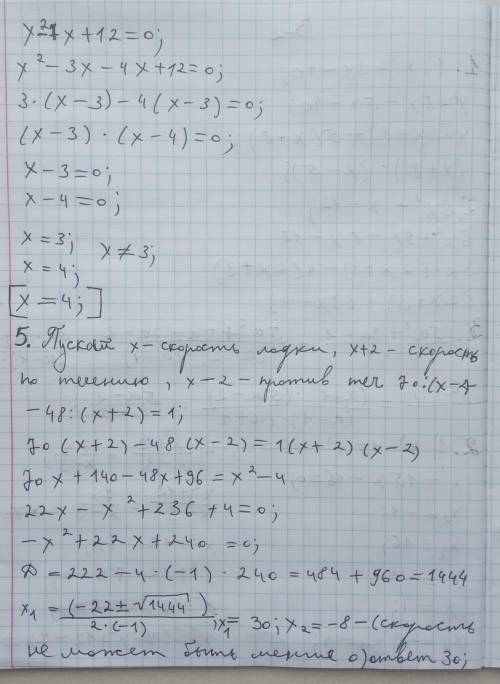 x²-7x+12=0;
x²-3x-4x+12=0;
3·(x-3)-4(x-3)=0;
(x-3)·(x-4)=0;
x-3=0;
x-4=0;
x=3; x≠3;
x=4;
[x=4;]
5. Пускай x-скорость лодки, x+2-скорость
по течению, x-2-против теч 70:(x-
-48:(x+2)=1;
70(x+2)-48(x-2)=1(x+2)(x-2)
70x+140-48x+96=x²-4
22x-x²+236+4=0;
-x²+22x+240=0;
D=222-4·(-1)·240=484+960=1444
x₁=(-22±√1444)/2·(-1); x₁=30; x₂=-8-(скорость
не может быть меньше 0) ответ 30;